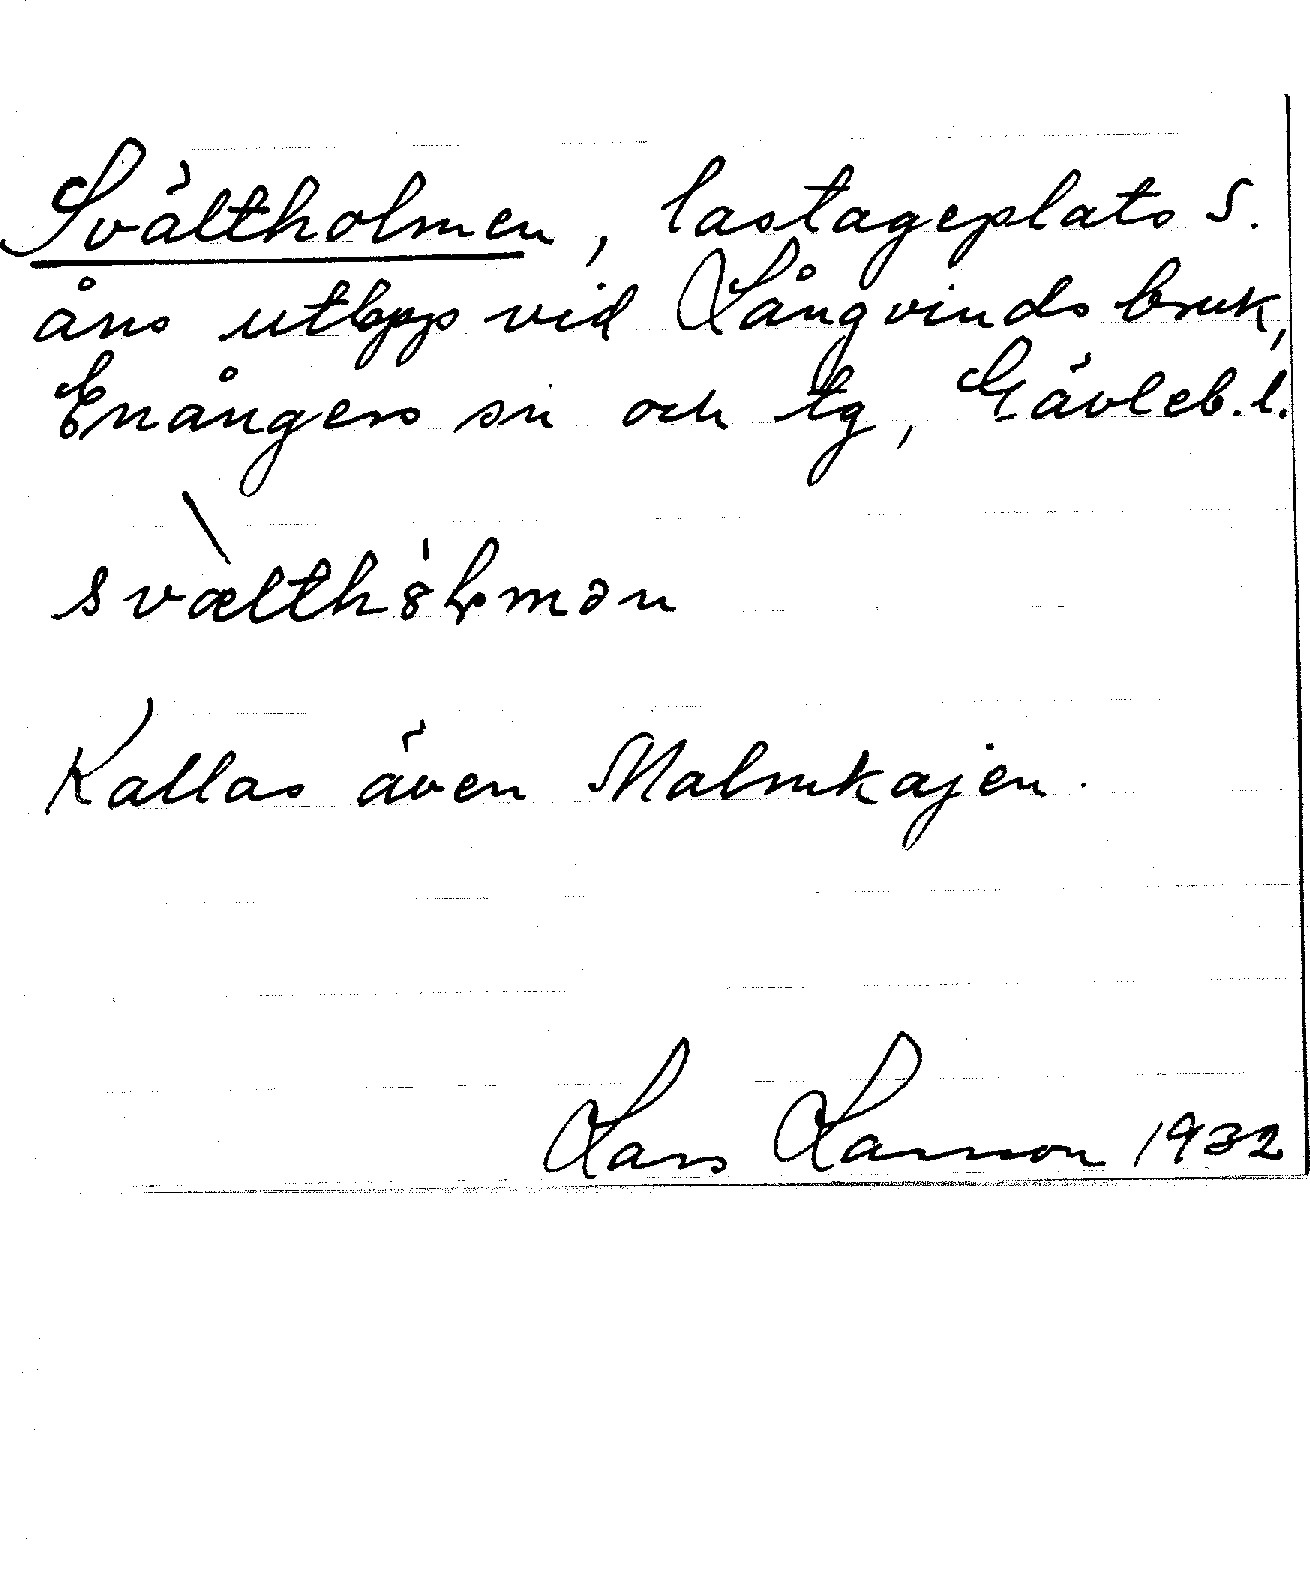 Svältholmen, lastageplats S.
åns utlopp vid Långvinds bruk,
Enångers sn och tg, Gävleb.l.
Kallas även Malmkajen.
Lars Larsson 1932